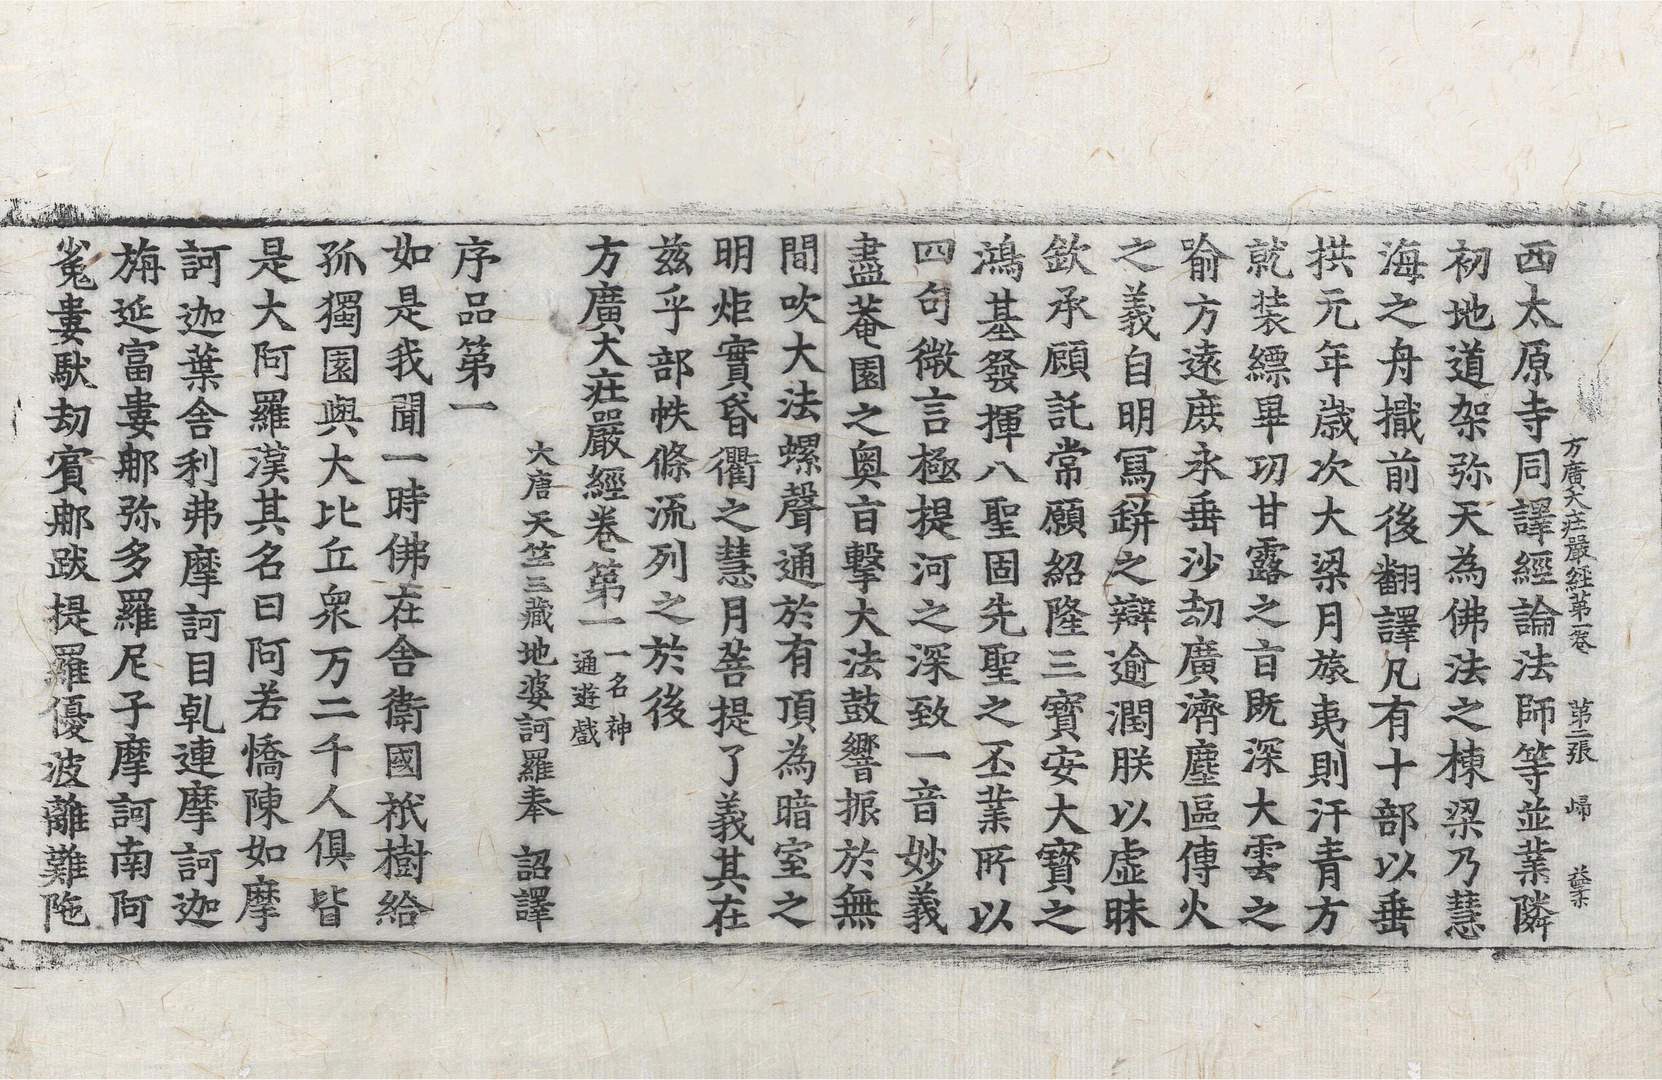 方廣大莊嚴經第一卷 第二張 歸
西太原寺同譯經論法師等並業隣
初地道架弥天為佛法之棟梁乃慧
海之舟檝前後翻譯凡有十部以垂
拱元年歲次大梁月旅夷則汗青方
就裝縹畢功甘露之旨既深大雲之
喻方遠庶永垂沙劫廣濟塵區傳火
之義自明寫缾之辯逾潤朕以虛昧
欽承顧託常願紹隆三寶安大寶之
鴻基發揮八聖固先聖之丕業所以
四句微言極提河之深致一音妙義
盡菴園之奧旨擊大法鼓響振於無
間吹大法螺聲通於有頂為暗室之
明炬實昏衢之慧月菩提了義其在
茲乎部帙條流列之於後
方廣大莊嚴經卷第一一名神通遊戲
大唐天竺三藏地婆訶羅奉 詔譯
序品第一
如是我聞一時佛在舍衛國祇樹給
孤獨園與大比丘衆万二千人俱皆
是大阿羅漢其名曰阿若憍陳如摩
訶迦葉舍利弗摩訶目乹連摩訶迦
旃延富婁那弥多羅尼子摩訶南阿
㝹婁馱劫賓那跋提羅優波離難陁